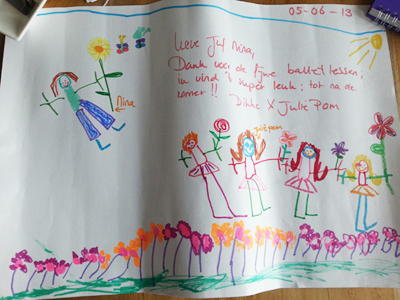 05-06-13
Lieve Juf Nina,
Dank voor de fijne balletlessen,
ik vind 't super leuk; tot na de
zomer!! Dikke X Julie Pom
Nina
Julie pom